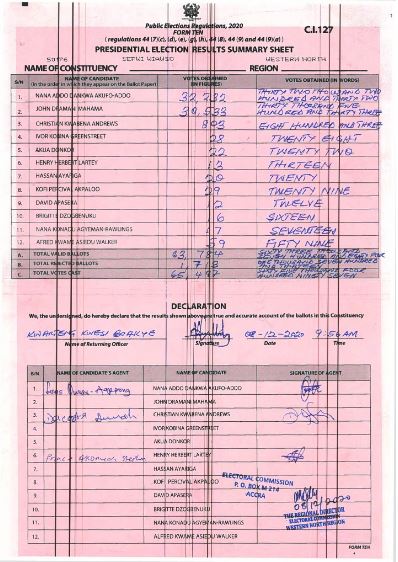 Public Elections Regulations, 2020
FORM TEN
C.I.127
( regulations 44 (7)(c), (d), (e), (g), (h), 44 (8), 44 (9) and 44 (9)(a) )
PRESIDENTIAL ELECTION RESULTS SUMMARY SHEET
NAME OF CONSTITUENCY SEFWI WIAWSO REGION WESTERN NORTH
S/N NAME OF CANDIDATE VOTES OBTAINED VOTES OBTAINED (IN WORDS)
(In the order in which they appear on the Ballot Paper) (IN FIGURES)
1. NANA ADDO DANKWA AKUFO-ADDO 32,232 THIRTY TWO THOUSAND TWO HUNDRED AND THIRTY TWO
2. JOHN DRAMANI MAHAMA 30,533 THIRTY THOUSAND FIVE HUNDRED AND THIRTY THREE
3. CHRISTIAN KWABENA ANDREWS 803 EIGHT HUNDRED AND THREE
4. IVOR KOBINA GREENSTREET 28 TWENTY EIGHT
5. AKUA DONKOR 22 TWENTY TWO
6. HENRY HERBERT LARTEY THIRTEEN
7. HASSAN AYARIGA 20 TWENTY
8. KOFI PERCIVAL AKPALOO 29 TWENTY NINE
9. DAVID APASERA 12 TWELVE
10. BRIGITTE DZOGBENUKU 16 SIXTEEN
11. NANA KONADU AGYEMAN-RAWLINGS 17 SEVENTEEN
12. ALFRED KWAME ASIEDU WALKER 59 FIFTY NINE
A. TOTAL VALID BALLOTS 63,784 SIXTY THREE THOUSAND SEVEN HUNDRED AND EIGHTY FOUR
B. TOTAL REJECTED BALLOTS 1,713 ONE THOUSAND SEVEN HUNDRED AND THIRTEEN
C. TOTAL VOTES CAST 65,497 SIXTY FIVE THOUSAND FOUR HUNDRED NINETY SEVEN
DECLARATION
We, the undersigned, do hereby declare that the results shown above are true and accurate account of the ballots in this Constituency
KWARTENG KWESI BOAKYE 08-12-2020 9:56 AM
Name of Returning Officer Signature Date Time
S/N NAME OF CANDIDATE'S AGENT NAME OF CANDIDATE SIGNATURE OF AGENT
1. NANA ADDO DANKWA AKUFO-ADDO
2. JOHN DRAMANI MAHAMA
3. CHRISTIAN KWABENA ANDREWS
4. IVOR KOBINA GREENSTREET
5. AKUA DONKOR
6. HENRY HERBERT LARTEY
7. HASSAN AYARIGA
8. KOFI PERCIVAL AKPALOO
ELECTORAL COMMISSION
P. O. BOX M 214
ACCRA
9. DAVID APASERA
10. BRIGITTE DZOGBENUKU
08/12/2020
THE REGIONAL DIRECTOR
ELECTORAL COMMISSION
WESTERN NORTH REGION
11. NANA KONADU AGYEMAN-RAWLINGS
12. ALFRED KWAME ASIEDU WALKER
FORM TEN